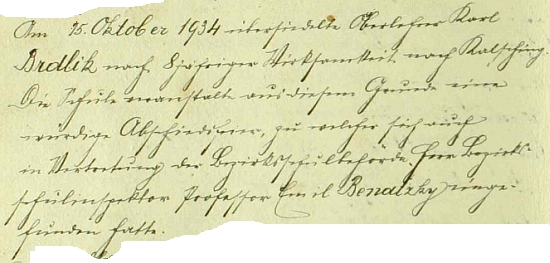 Am 15. Oktober 1934 übersiedelte Oberlehrer Karl
Brdlik nach 8jähriger Wirksamkeit nach Kalsching.
Die Schule veranstalte aus diesem Grunde eine
würdige Abschiedsfeier, zu welcher sich auch
in Vertretung der Bezirksschulbehörde Herr Bezirks-
schulinspektor Professor Emil Benatzky einge-
funden hatte.